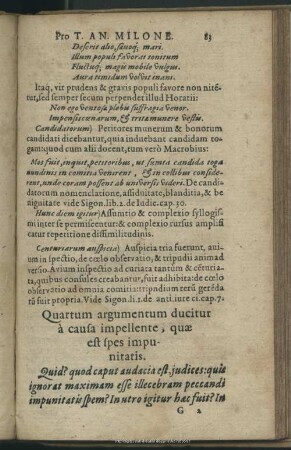 Pro T. AN. MILONE. 83
Deserit alio, sæuoq; mari.
Illum populi fauorat tonitum
Fluctuq; magis mobile vulgus.
Aura timidum voluit inani.
Itaq, vit prudens & grauis populi favore non nitêtur,
sed semper secum perpendet illud Horatii:
Non ego ventosa plebis suffragia venor.
Impensis cœnarum, & trita munere vestis.
Candidatorum) Petitores munerum & bonorum
candidati dicebantur, quia induebant candidam togam:
quod cum alii docent, tum verò Macrobius:
Mos fuit, inquit, petitoribus, ut sicinta candida toga
nundinis in comitia venirent, & in collibus considerent,
unde coram possent ab universis videri. De candidatorum
nomenclatione, assiduitate, blanditia, & benignitate
vide Sigon. lib. 2. de Iudic. cap. 30.
Hunc diem igitur) Assumtio & complexio syllogismi
inter se permiscentur: & complexio rursus amplificatur
repetitione dissimilitudinis.
Centuriarum auspicia) Auspicia tria fuerunt, auium
inspectio, de cœlo observatio, & tripudii animadversio.
Avium inspectio ad curiata tantùm & cẽturiata,
quibus consules creabantur, fuit adhibita: de cœlo
observatio ad omnia comitia: tripudium terũ gerẽdarũ
fuit propria. Vide Sigon. li. 1. de anti. iure ci. cap. 7.
Quartum argumentum ducitur
à causa impellente, quæ
est spes impunitatis.
Quid? quod caput audaciæ est, judices: quis
ignorat maximam esse illecebram peccandi
impunitatis spem? In utro igitur hæc fuit? In
G 2